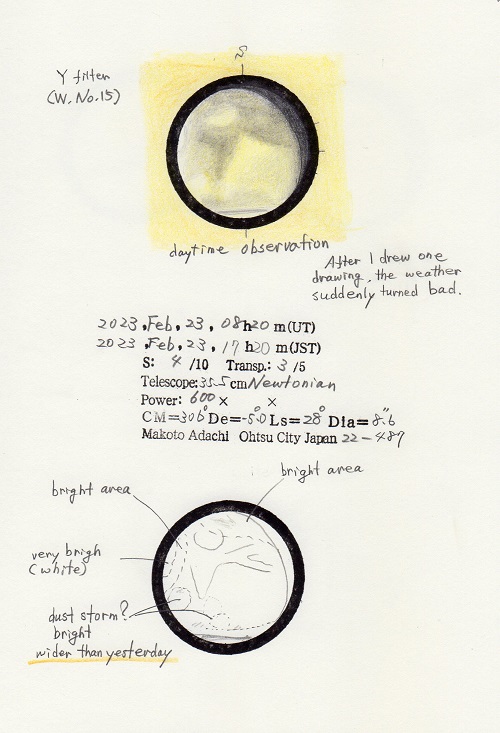 S
Y filter
(W. No.15)
daytime observation
After I drew one
drawing, the weather
suddenly turned bad.
2023, Feb, 23, 08h20 m(UT)
2023, Feb, 23, 17h20 m(JST)
S: 4 /10 Transp.: 3 /5
Telescope: 35.5 cm Newtonian
Power: 600 × ×
CM=306° De=-5.0° Ls=28° Dia=8."6
Makoto Adachi Ohtsu City Japan 22-487
bright area
bright area
very brigh
(white)
dust storm?
bright
wider than yesterday